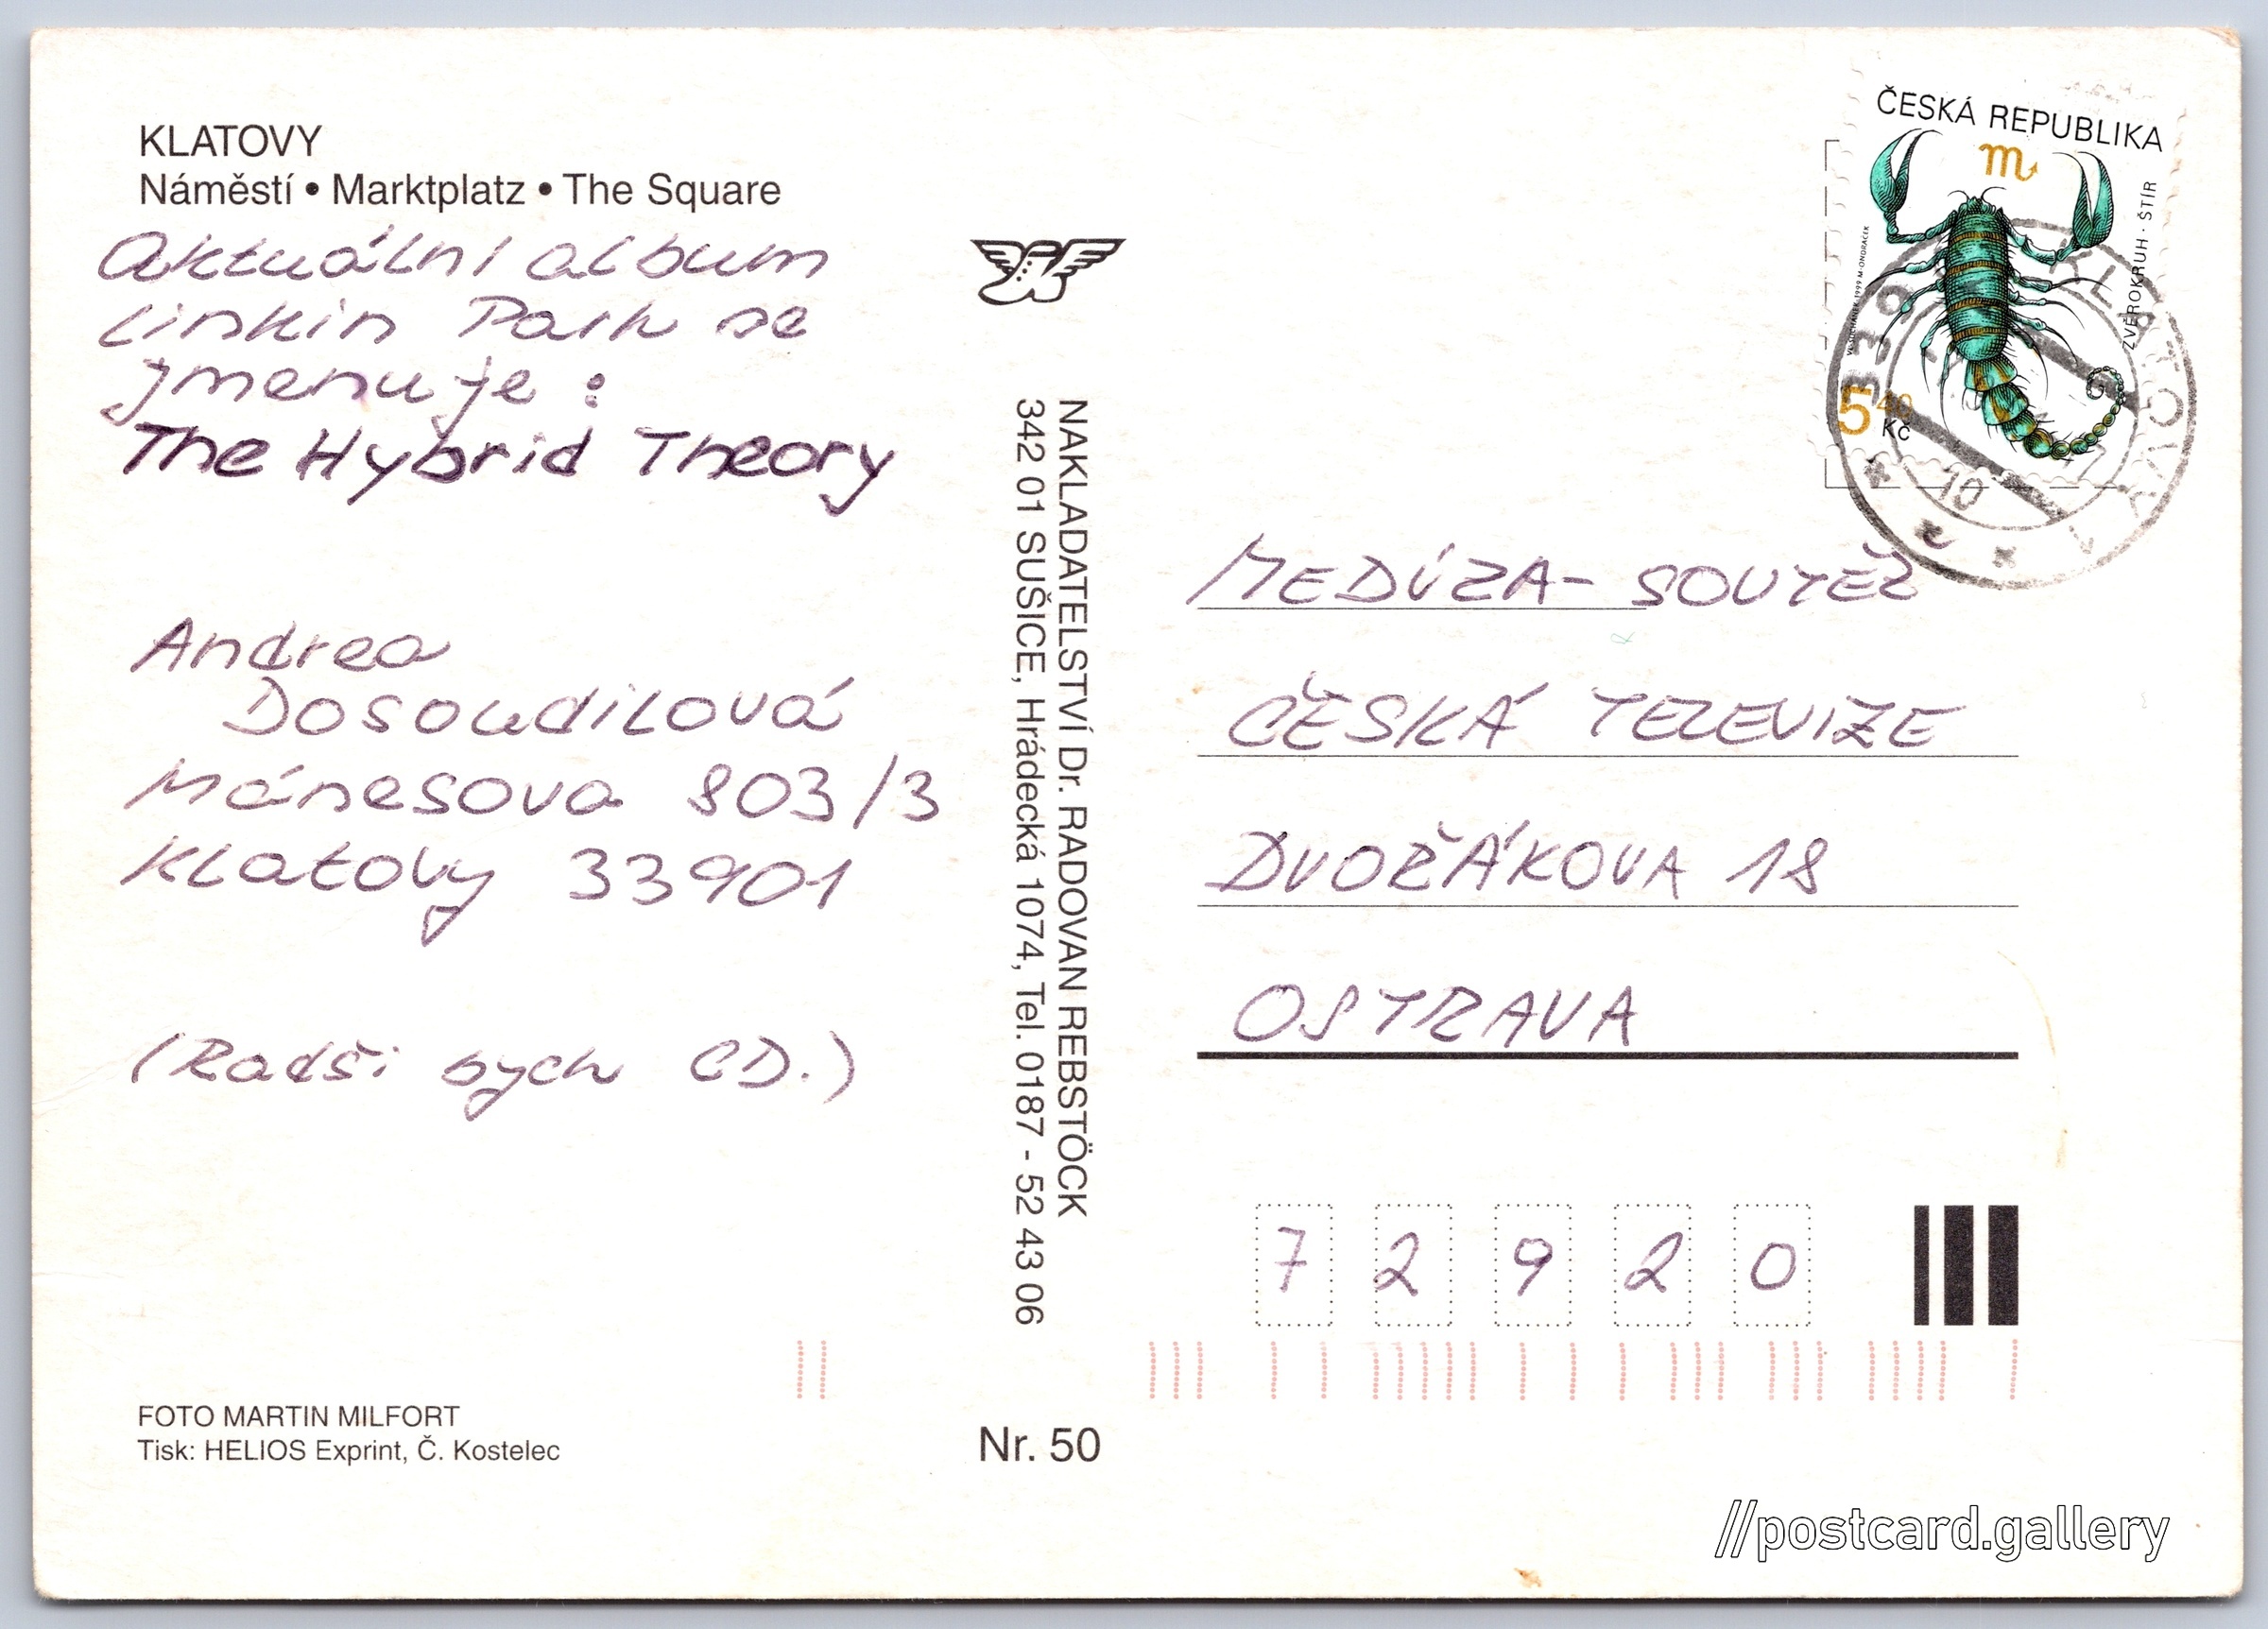 KLATOVY
Náměstí • Marktplatz • The Square
Aktuální album
Linkin Park se
jmenuje:
The Hybrid Theory
Andrea
Dosoudilová
Mánesova 803/3
Klatovy 33901
(Radši bych CD.)
FOTO MARTIN MILFORT
Tisk: HELIOS Exprint, Č. Kostelec
NAKLADATELSTVÍ Dr. RADOVAN REBSTÖCK
342 01 SUŠICE, Hrádecká 1074, Tel. 0187 - 52 43 06
Nr. 50
ČESKÁ REPUBLIKA
ZVĚROKRUH · ŠTÍR
5 40
Kč
339 KLATOVY 1
10
MEDÚZA - SOUTĚŽ
ČESKÁ TELEVIZE
DVOŘÁKOVA 18
OSTRAVA
7 2 9 2 0
//postcard.gallery